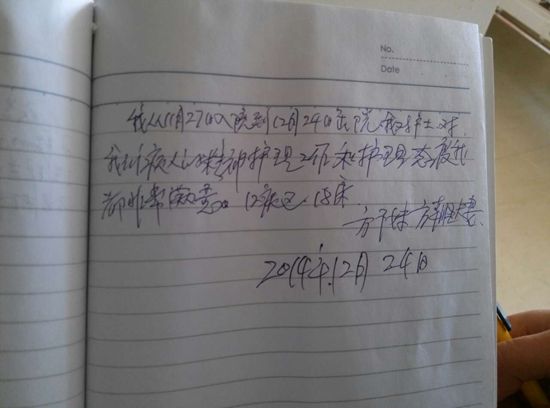 No.
Date
我从11月27日入院到12月24日出院, 护士对
我们病人的精神护理工作和护理态度我
都非常满意。12病区 18床
方
2014年12月24日